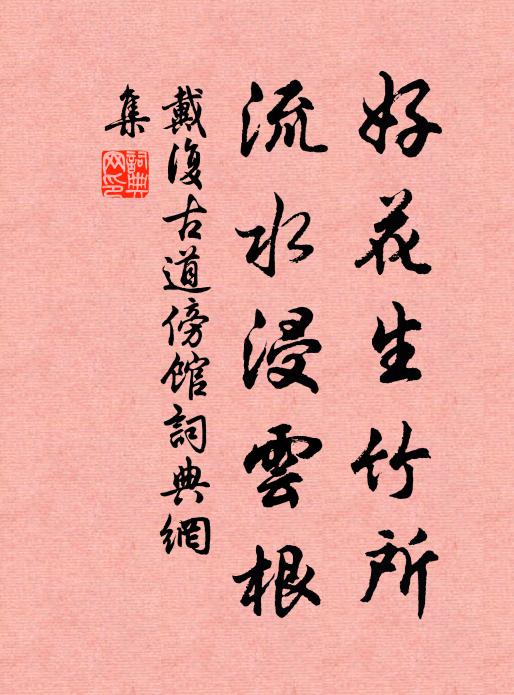 好花生竹所
流水浸雲根
戴復古道傍館詞典網
集
詞典
网印